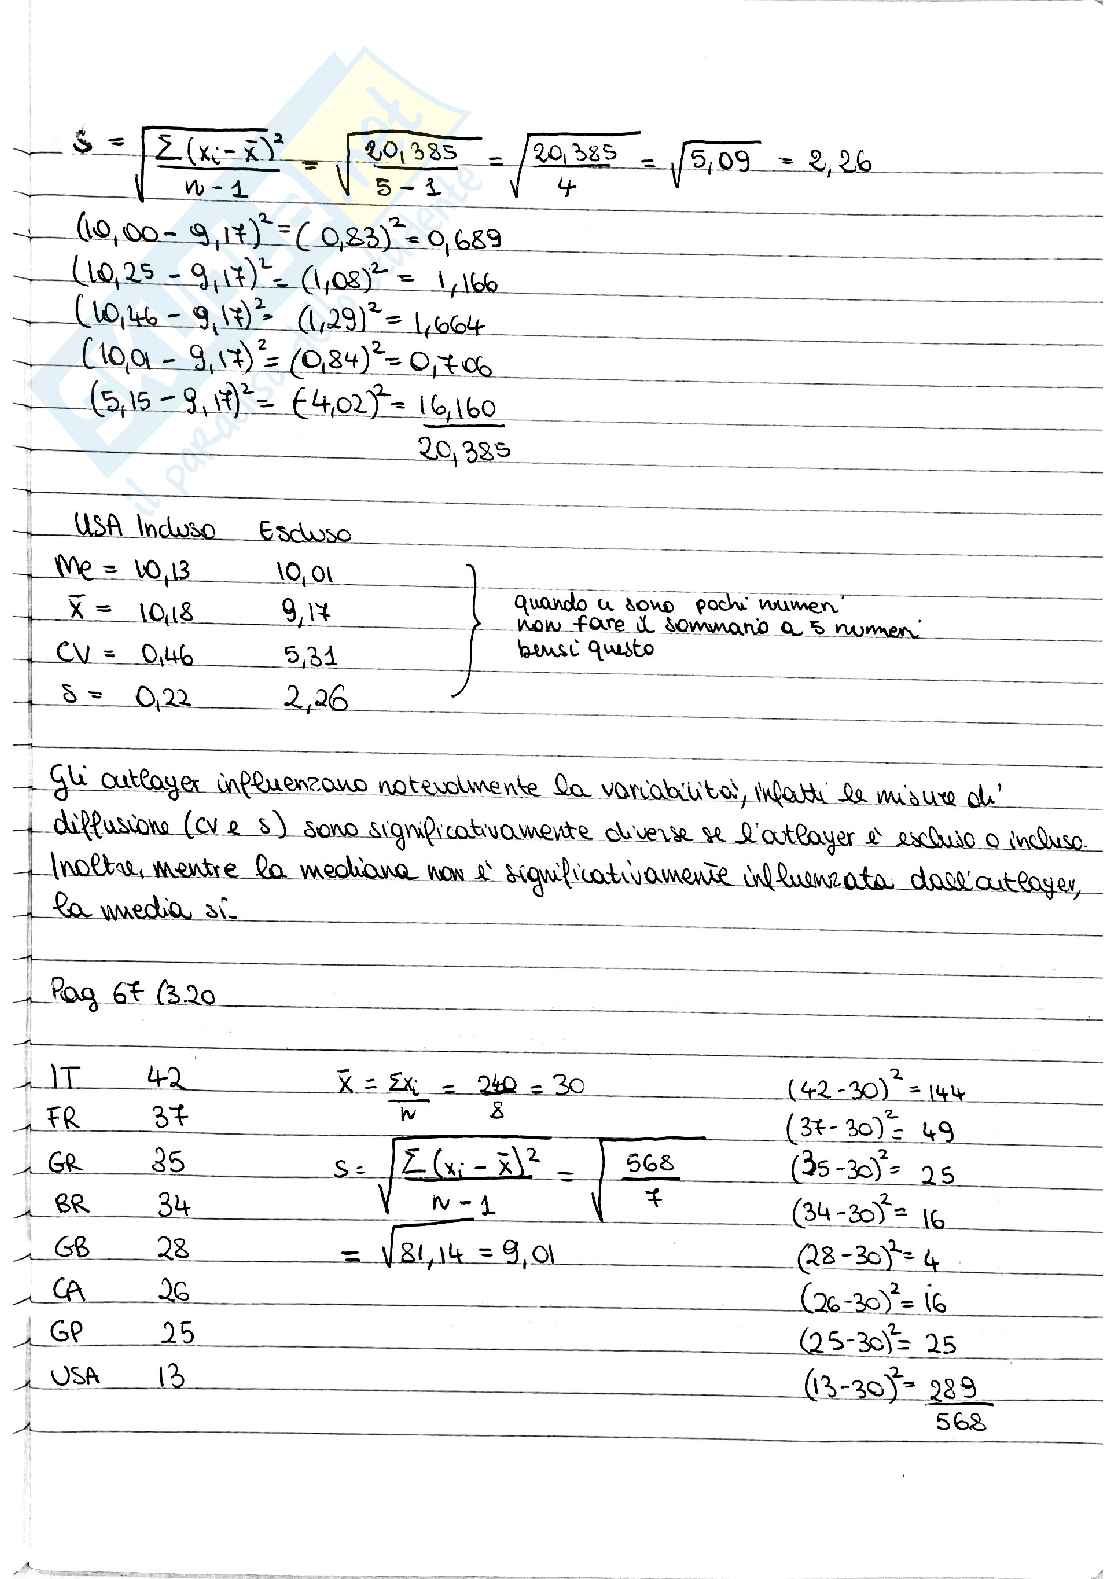 S = √(Σ(xᵢ - x̄)² / n - 1) = √(20,385 / 5 - 1) = √(20,385 / 4) = √5,09 = 2,26
(10,00 - 9,17)² = (0,83)² = 0,689
(10,25 - 9,17)² = (1,08)² = 1,166
(10,46 - 9,17)² = (1,29)² = 1,664
(10,01 - 9,17)² = (0,84)² = 0,706
(5,15 - 9,17)² = (-4,02)² = 16,160
20,385
USA Incluso Escluso
Me = 10,13 10,01
x̄ = 10,18 9,17
CV = 0,46 5,31
s = 0,22 2,26
quando ci sono pochi numeri
non fare il sommario a 5 numeri
bensì questo
Gli outlayer influenzano notevolmente la variabilità, infatti le misure di
diffusione (CV e s) sono significativamente diverse se l'outlayer è escluso o incluso.
Inoltre, mentre la mediana non è significativamente influenzata dall'outlayer,
la media sì.
Pag 67 (3.20
IT 42
FR 37
GR 35
BR 34
GB 28
CA 26
GP 25
USA 13
x̄ = Σxᵢ / n = 240 / 8 = 30
S = √(Σ(xᵢ - x̄)² / n - 1) = √(568 / 7)
= √81,14 = 9,01
(42-30)² = 144
(37-30)² = 49
(35-30)² = 25
(34-30)² = 16
(28-30)² = 4
(26-30)² = 16
(25-30)² = 25
(13-30)² = 289
568